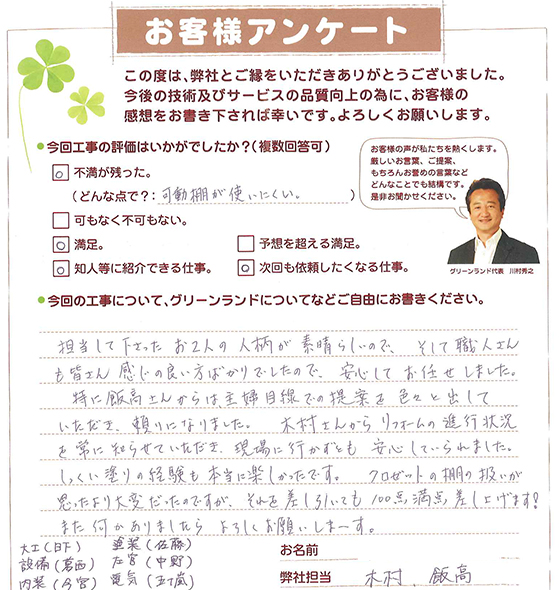 お客様アンケート
この度は、弊社とご縁をいただきありがとうございました。
今後の技術及びサービスの品質向上の為に、お客様の
感想をお書き下されば幸いです。よろしくお願いします。
●今回工事の評価はいかがでしたか？（複数回答可）
お客様の声が私たちを熱くします。
厳しいお言葉、ご提案、
もちろんお誉めの言葉など
どんなことでも結構です。
是非お聞かせください。
グリーンランド代表 川村秀之
不満が残った。
（どんな点で？：可動棚が使いにくい。）
可もなく不可もない。
満足。
予想を超える満足。
知人等に紹介できる仕事。
次回も依頼したくなる仕事。
●今回の工事について、グリーンランドについてなどご自由にお書きください。
担当して下さった お2人の 人柄が 素晴らしいので、そして職人さん
も皆さん 感じの良い方ばかりでしたので、安心して お任せしました。
特に飯高さんからは主婦目線での提案を 色々と出して
いただき、頼りになりました。 木村さんから リフォームの進行状況
を常に知らせていただき、現場に行かずとも 安心していられました。
しっくい塗りの経験も本当に楽しかったです。 クロゼットの棚の扱いが
思ったより大変だったのですが、それを差し引いても100点満点差し上げます！
また何かありましたら よろしくお願いしまーす。
大工（日下） 塗装（佐藤）
設備（葛西） 左官（中野）
内装（今宮） 電気（五十嵐）
お名前
弊社担当 木村、飯高